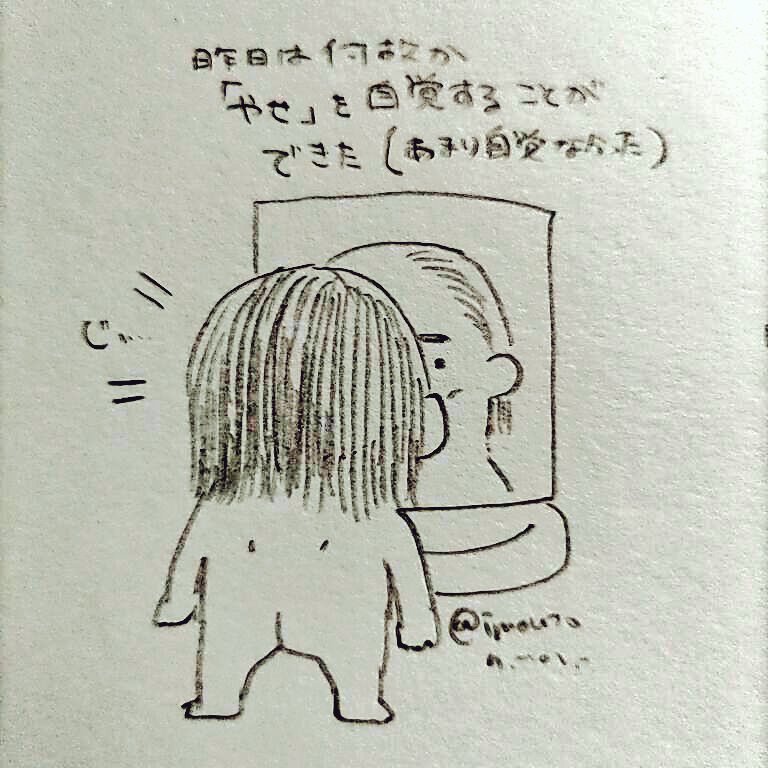 昨日は何故か
「やせ」を自覚することが
できた(あまり自覚なかった)
じー…